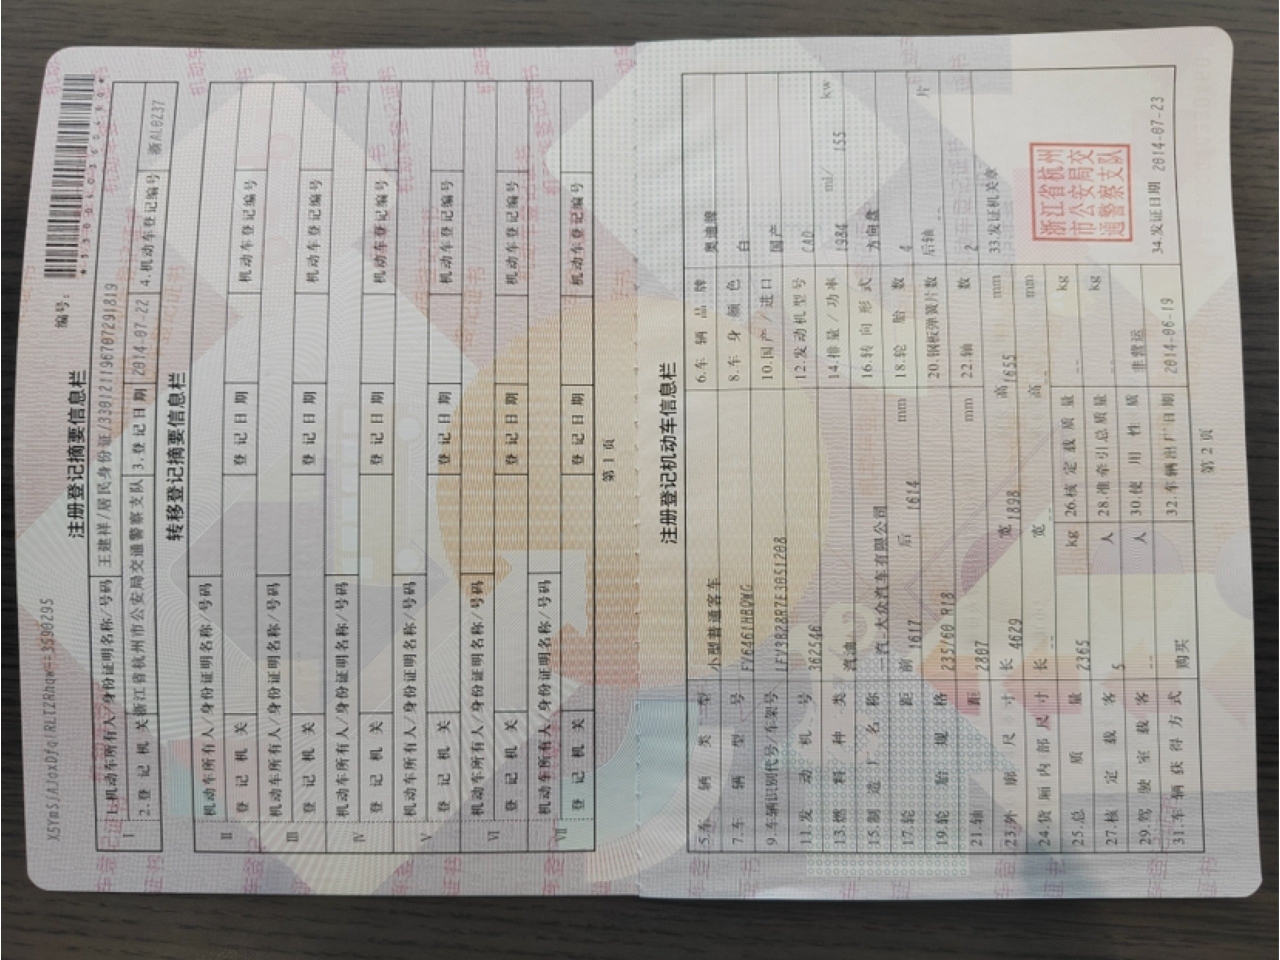 X5YmS/AJoxDfqiRLTZRhqw==3590295
注册登记摘要信息栏
编号:
I
1.机动车所有人/身份证明名称/号码 王建祥/居民身份证/330121196707291819
2.登记机关 浙江省杭州市公安局交通警察支队 3.登记日期 2014-07-22 4.机动车登记编号 浙AL0237
转移登记摘要信息栏
II
机动车所有人/身份证明名称/号码
登记机关 登记日期 机动车登记编号
III
机动车所有人/身份证明名称/号码
登记机关 登记日期 机动车登记编号
IV
机动车所有人/身份证明名称/号码
登记机关 登记日期 机动车登记编号
V
机动车所有人/身份证明名称/号码
登记机关 登记日期 机动车登记编号
VI
机动车所有人/身份证明名称/号码
登记机关 登记日期 机动车登记编号
VII
机动车所有人/身份证明名称/号码
登记机关 登记日期 机动车登记编号
第 1 页
注册登记机动车信息栏
5.车辆类型 小型普通客车 6.车辆品牌 奥迪牌
7.车辆型号 FV6461HBQWG 8.车身颜色 白
9.车辆识别代号/车架号 LFV3B28R7E3051208 10.国产/进口 国产
11.发动机号 362546 12.发动机型号 CAD
13.燃料种类 汽油 14.排量/功率 1984 ml/ 155 kw
15.制造厂名称 一汽-大众汽车有限公司 16.转向形式 方向盘
17.轮距 前 1617 后 1614 mm 18.轮胎数 4
19.轮胎规格 235/60 R18 20.钢板弹簧片数 后轴 -- 片
21.轴距 2807 mm 22.轴数 2
23.外廓尺寸 长 4629 宽 1898 高 1655 mm 33.发证机关章
24.货厢内部尺寸 长 -- 宽 -- 高 -- mm
浙江省杭州
市公安局交
通警察支队
25.总质量 2365 kg 26.核定载质量 -- kg
27.核定载客 5 人 28.准牵引总质量 -- kg
29.驾驶室载客 -- 人 30.使用性质 非营运
31.车辆获得方式 购买 32.车辆出厂日期 2014-06-19 34.发证日期 2014-07-23
第 2 页